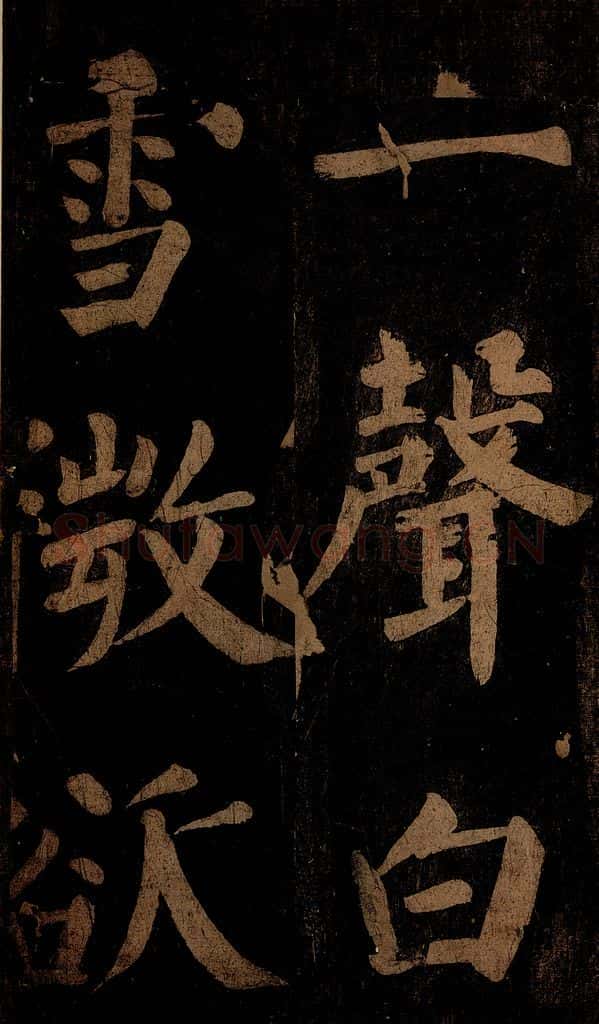 一聲白
雪微欲
Shufawang.CN